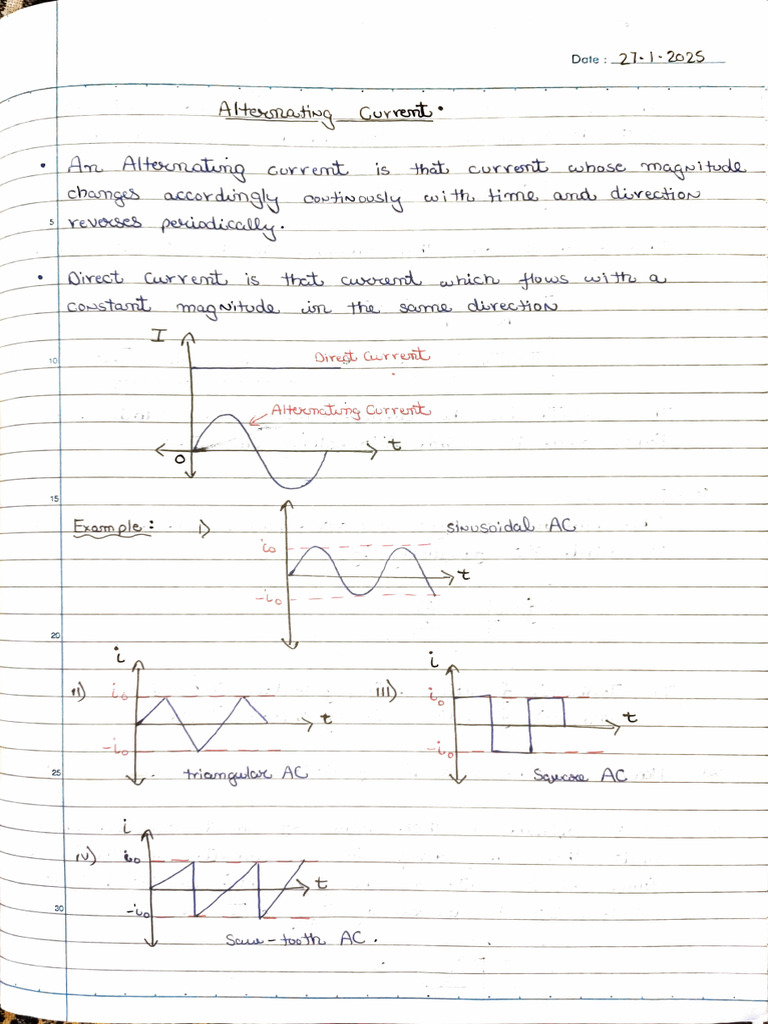 Date : 27.1.2025
Alternating Current.
• An Alternating current is that current whose magnitude
changes accordingly continously with time and direction
5 reverses periodically.
• Direct Current is that current which flows with a
constant magnitude in the same direction
I
10 Direct Current
Alternating Current
t
O
15
Example: i) sinusoidal AC
i₀
t
-i₀
20
i i
ii) i₀ iii) i₀
t t
-i₀ -i₀
25 triangular AC Square AC
i
iv) i₀
t
30 -i₀
Saw-tooth AC.